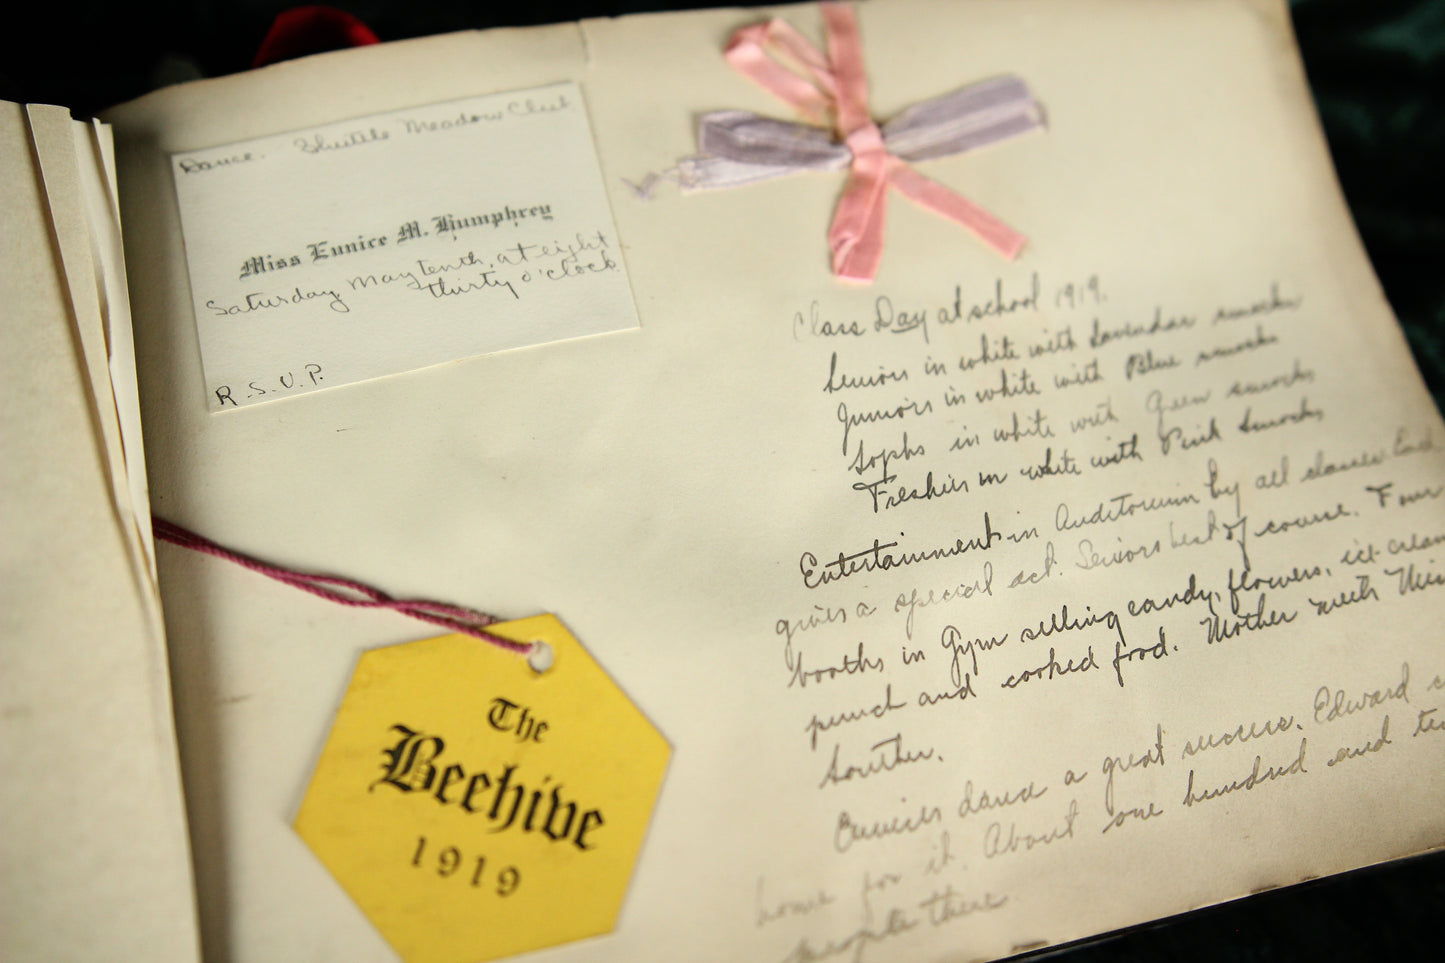 Dance. Shuttle Meadow Club
Miss Eunice M. Humphrey
Saturday May tenth, at eight
thirty o'clock
R.S.V.P.
Class Day at school 1919.
Seniors in white with Lavendar smocks
Juniors in white with Blue smocks
Sophs in white with Green smocks
Freshies in white with Pink Smocks
Entertainment in Auditorium by all classes Each
gives a special act. Seniors best of course. Four
booths in Gym selling candy, flowers, ice-cream
punch and cooked food. Mother meets Miss
Souther.
Eunices dance a great success. Edward
home for it. About one hundred and
people there.
The
Beehive
1919